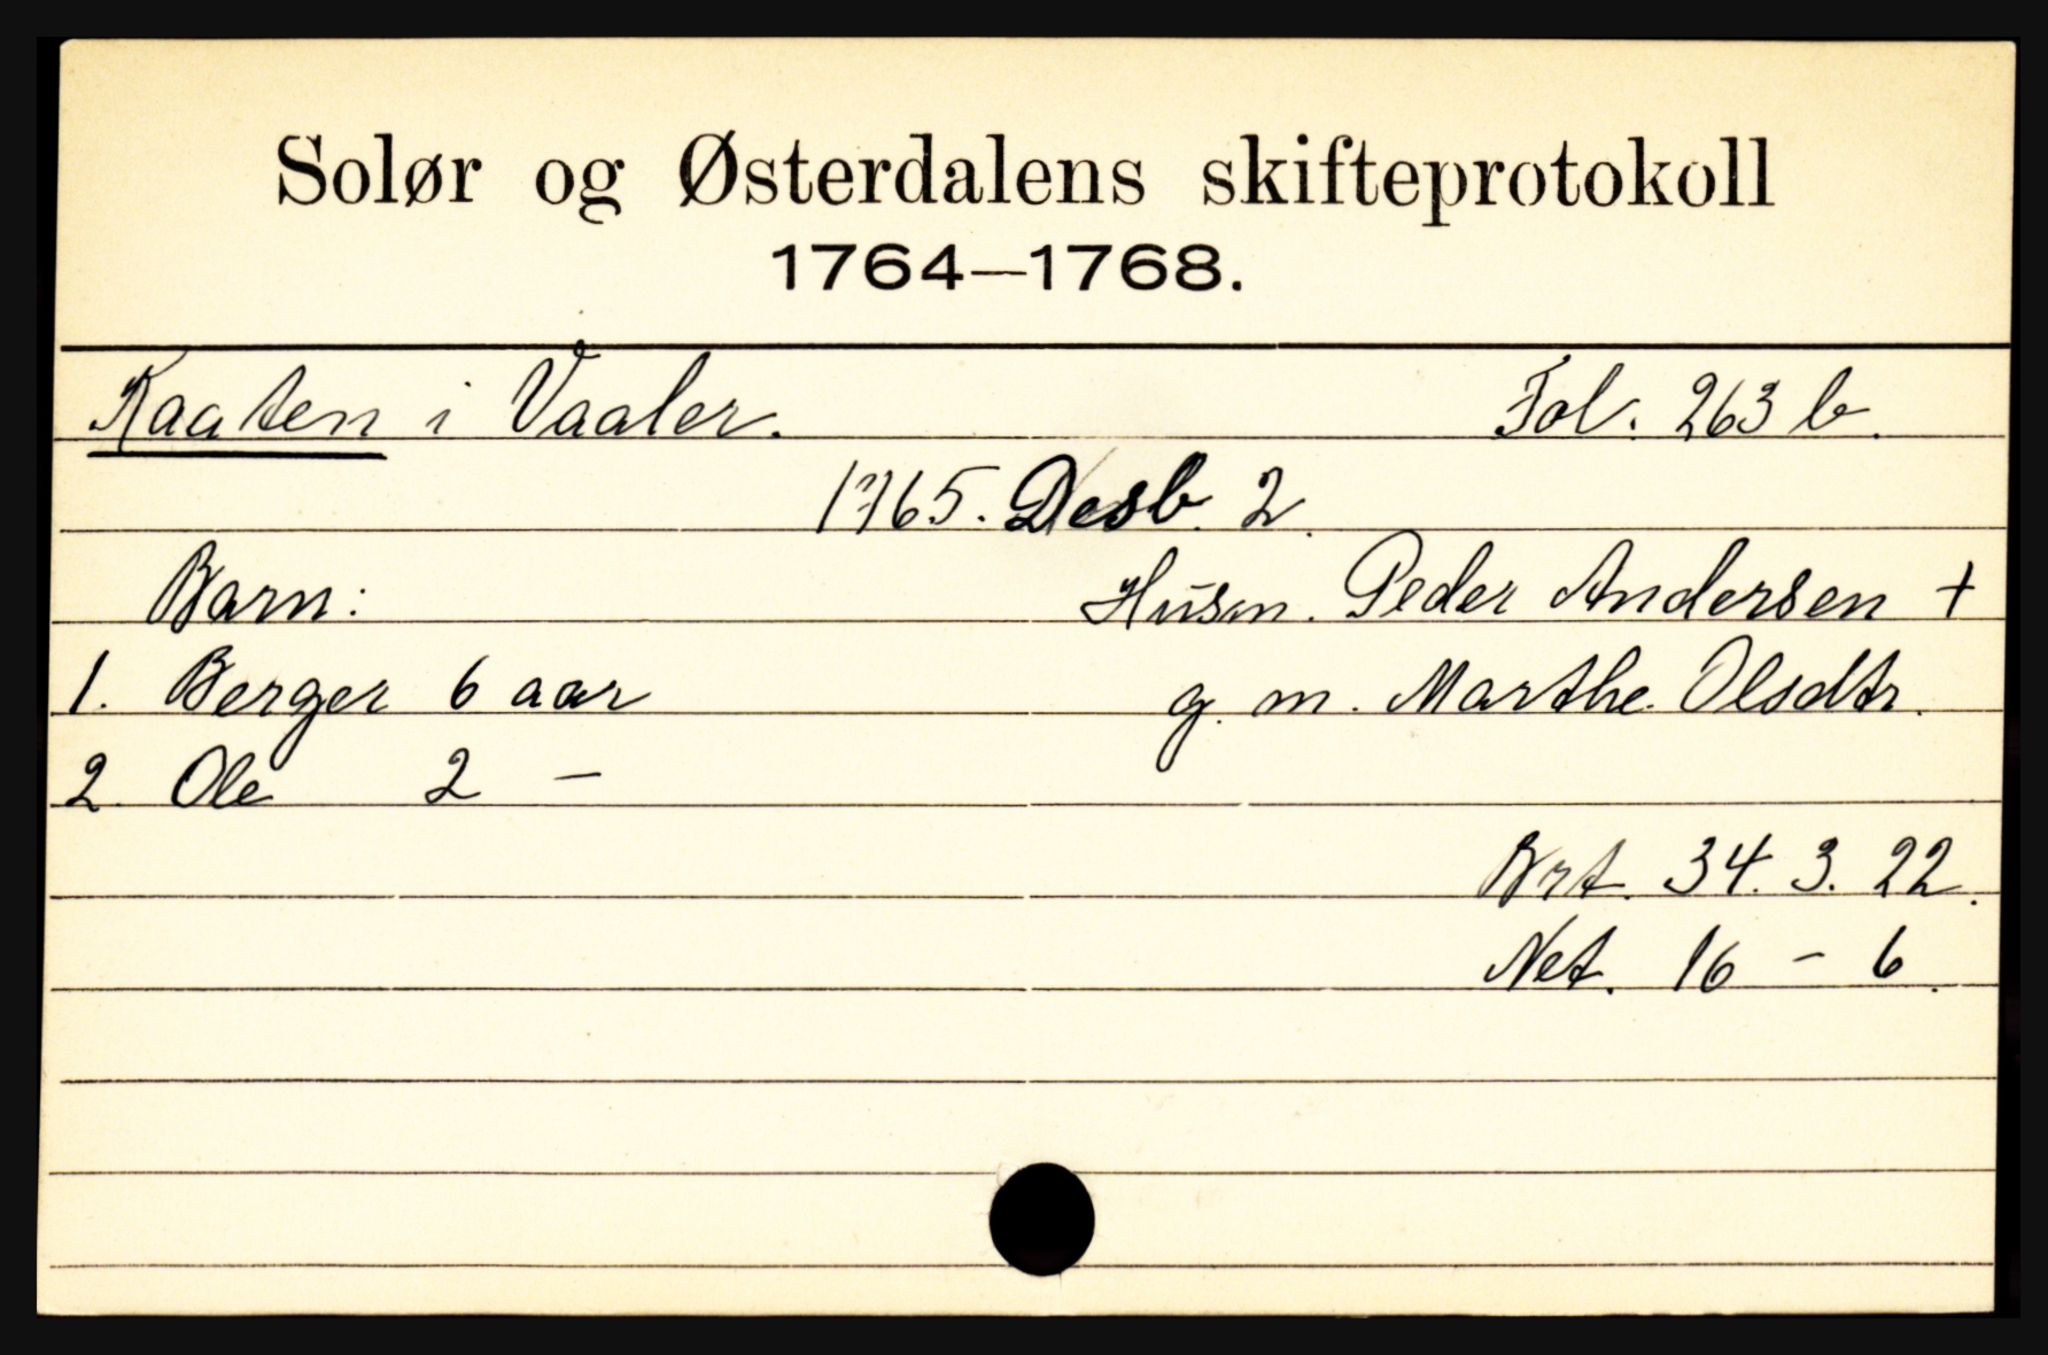 Solør og Østerdalens skifteprotokoll
1764—1768.
Kaaten i Vaaler. Fol. 263 b.
1765. Desb. 2.
Barn: Husm. Peder Andersen +
1. Berger 6 aar g. m. Marthe Olsdtr.
2. Ole 2 —
Brt. 34. 3. 22.
Net. 16 – 6.